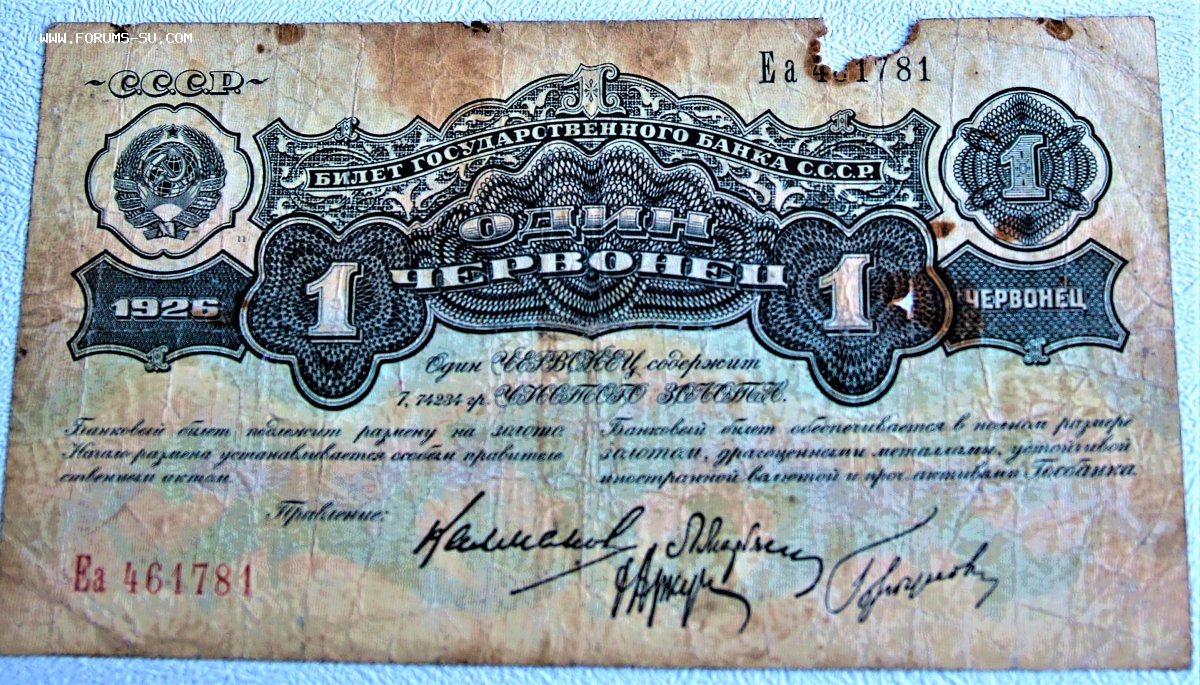 WWW.FORUMS-SU.COM
~С.С.С.Р.~
Еа 461781
1
БИЛЕТ ГОСУДАРСТВЕННОГО БАНКА С.С.С.Р.
1
ОДИН
ЧЕРВОНЕЦ
1926
1
1
ЧЕРВОНЕЦ
Один ЧЕРВОНЕЦ содержит
7,74234 гр. ЧИСТОГО ЗОЛОТА.
Банковый билет подлежит размену на золото.
Начало размена устанавливается особым правитель
ственным актом.
Банковый билет обеспечивается в полном размере
золотом, драгоценными металлами, устойчивой
иностранной валютой и проч. активами Госбанка.
Правление:
Еа 461781